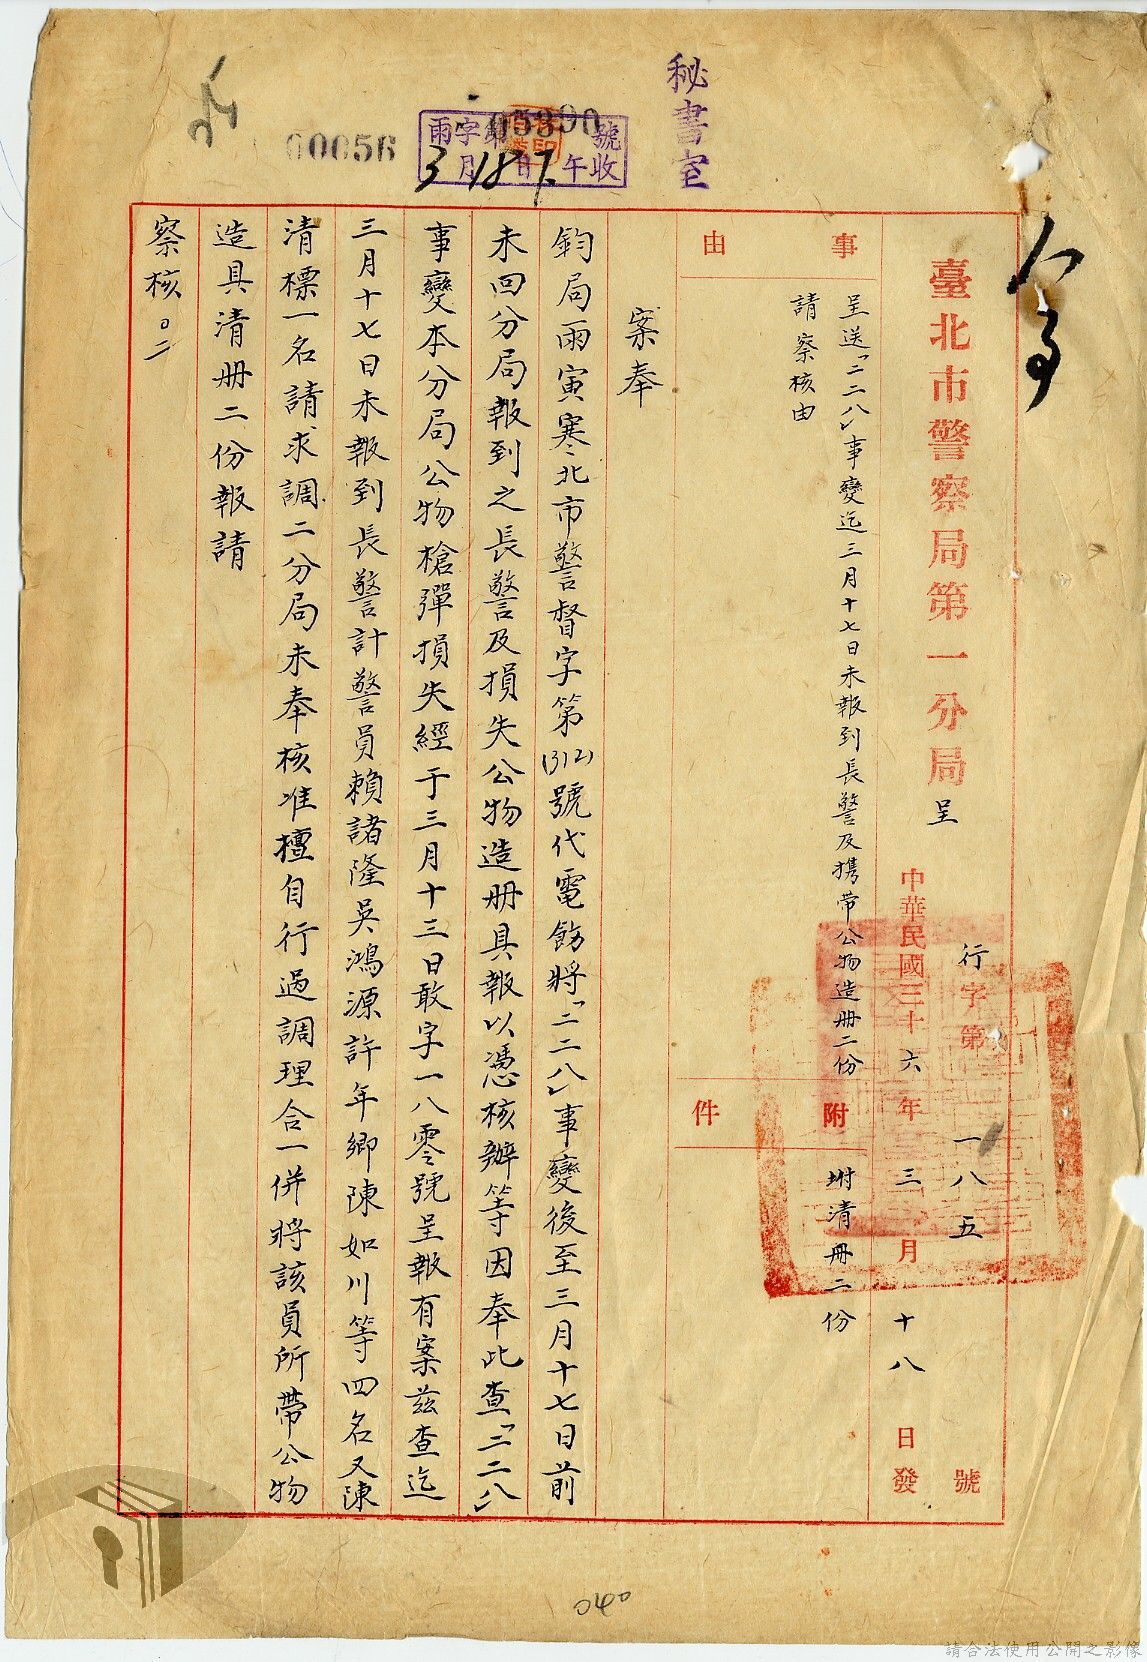 秘書室
00056
05390
雨字第號
3月18日午收
臺北市警察局第一分局呈
行字第一八五號
中華民國三十六年三月十八日發
事由
呈送「二二八」事變迄三月十七日未報到長警及携帶公物造册二份
請察核由
附件
坿清册二份
案奉
鈞局雨寅寒北市警督字第(312)號代電飭將「二二八」事變後至三月十七日前
未回分局報到之長警及損失公物造册具報以憑核辦等因奉此查「二二八」
事變本分局公物槍彈損失經于三月十三日敢字一八零號呈報有案茲查迄
三月十七日未報到長警計警員賴諸隆吳鴻源許年鄉陳如川等四名又陳
清標一名請求調二分局未奉核准擅自行過調理合一併將該員所帶公物
造具清册二份報請
察核。二
040
請合法使用公開之影像